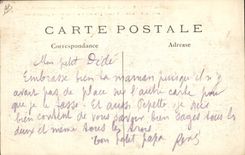 CARTE POSTALE
Correspondance Adresse
Mon petit Dédé
Embrasse bien ta maman puisqu'il n'y
avait pas de place sur l'autre carte pour
que je le fasse. Et aussi Pépette je suis
bien content de vous savoir bien sages tous les
deux et même tous les
ton petit papa René